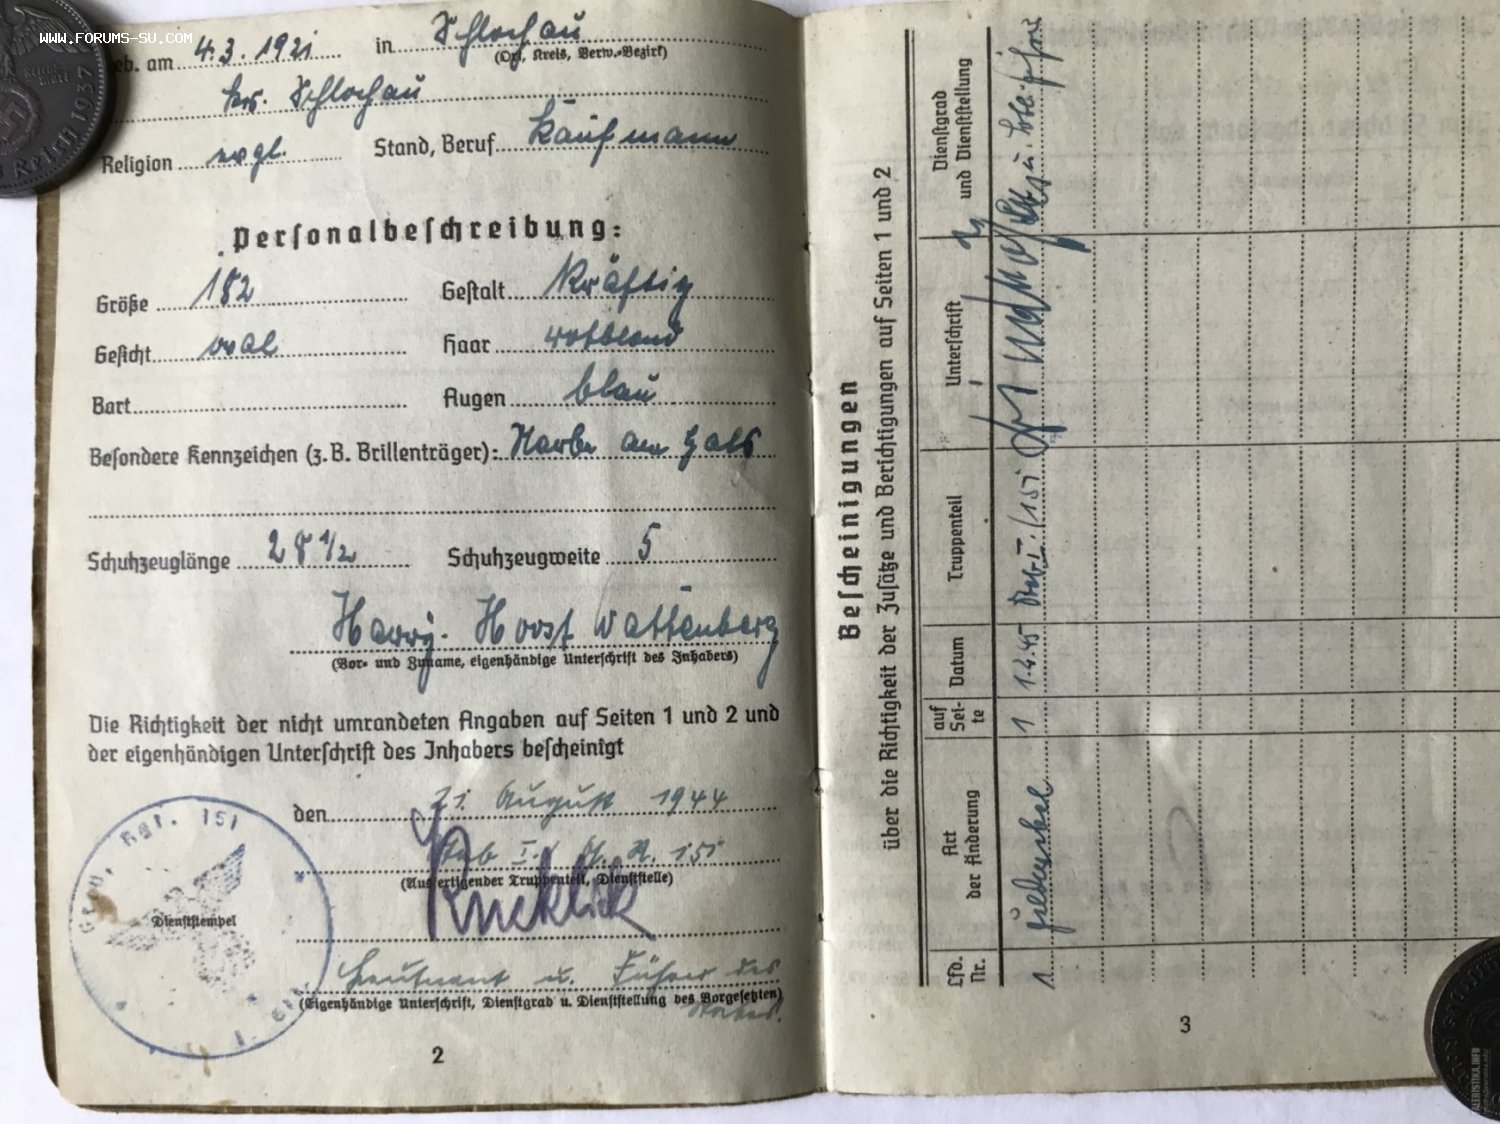 www.forums-su.com
Reich 1937
eb. am 4.3.1921 in Schlochau
(Ort, Kreis, Verw.-Bezirk)
Krs. Schlochau
Religion evgl. Stand, Beruf Kaufmann
Personalbeschreibung:
Größe 182 Gestalt kräftig
Gesicht oval Haar rotblond
Bart Augen blau
Besondere Kennzeichen (z.B. Brillenträger): Narbe am Hals
Schuhzeuglänge 28 1/2 Schuhzeugweite 5
Harry. Horst Wattenberg
(Vor- und Zuname, eigenhändige Unterschrift des Inhabers)
Die Richtigkeit der nicht umrandeten Angaben auf Seiten 1 und 2 und
der eigenhändigen Unterschrift des Inhabers bescheinigt
den 21. August 1944
Stab I./ G. R. 151
(Ausfertigender Truppenteil, Dienststelle)
Gren. Rgt. 151
Dienststempel
Leutnant u. Führer des
(Eigenhändige Unterschrift, Dienstgrad u. Dienststellung des Vorgesetzten)
Stabes.
2
Bescheinigungen
über die Richtigkeit der Zusätze und Berichtigungen auf Seiten 1 und 2
Lfd. Nr.
Art der Änderung
auf Sei-te
Datum
Truppenteil
Unterschrift
Dienstgrad und Dienststellung
1 1 1.2.45 Stab I./151
3